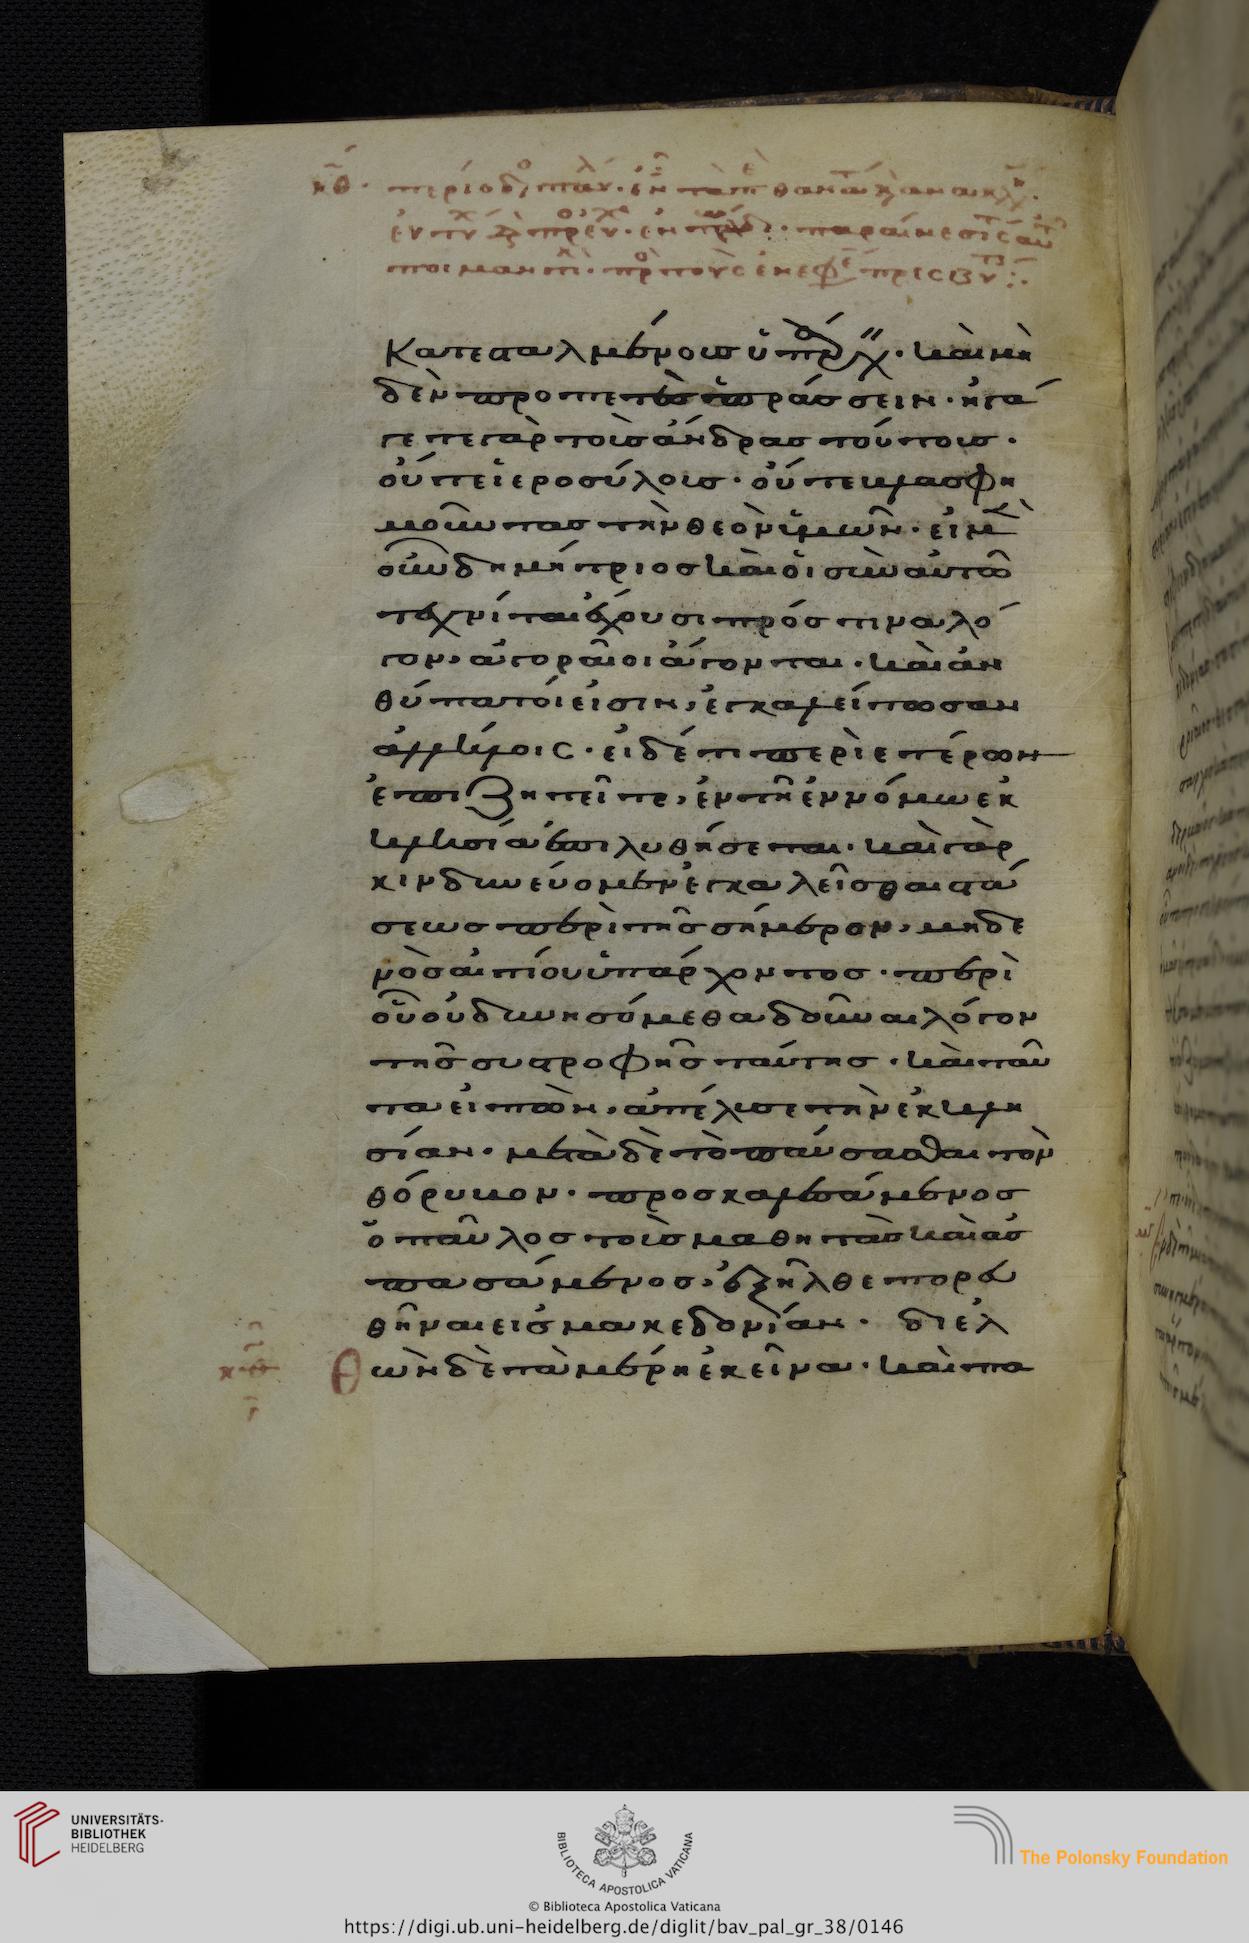 κατεσταλμένους ὑπάρχ · καὶ μη
δὲν προπετὲς πράσσειν · ἠγά
γετε γὰρ τοὺς ἄνδρας τούτους ·
οὔτε ἱεροσύλους · οὔτε βλασφη
μοῦντας τὴν θεὸν ὑμῶν · εἰ μὲ
οὖν δημήτριος καὶ οἱ σὺν αὐτῶ
τεχνίται ἔχουσι πρός τινα λό
γον, ἀγοραῖοι ἄγονται · καὶ ἀν
θύπατοί εἰσιν, ἐγκαλείτωσαν
ἀλλήλοις · εἰ δέ τι περὶ ἑτέρων
ἐπιζητεῖτε, ἐν τῆ ἐννόμω ἐκ
κλησία ἐπιλυθήσεται · καὶ γὰρ
κινδυνεύομεν ἐγκαλεῖσθαι στά
σεως περὶ τῆς σήμερον, μηδε
νὸς αἰτίου ὑπάρχοντος · περὶ
οὗ οὐ δυνησόμεθα δοῦναι λόγον
τῆς συστροφῆς ταύτης · καὶ ταῦ
τα εἰπὼν, ἀπέλυσε τὴν ἐκκλη
σίαν · μετὰ δὲ τὸ παύσασθαι τὸν
θόρυβον · προσκαλεσάμενος
ὁ παῦλος τοὺς μαθητὰς καὶ ἀσ
πασάμενος, ἐξῆλθε πορευ
θῆναι εἰς μακεδονίαν · διελ
θὼν δὲ τὰ μέρη ἐκεῖνα · καὶ πα
UNIVERSITÄTS-
BIBLIOTHEK
HEIDELBERG
BIBLIOTECA APOSTOLICA VATICANA
The Polonsky Foundation
© Biblioteca Apostolica Vaticana
https://digi.ub.uni-heidelberg.de/diglit/bav_pal_gr_38/0146